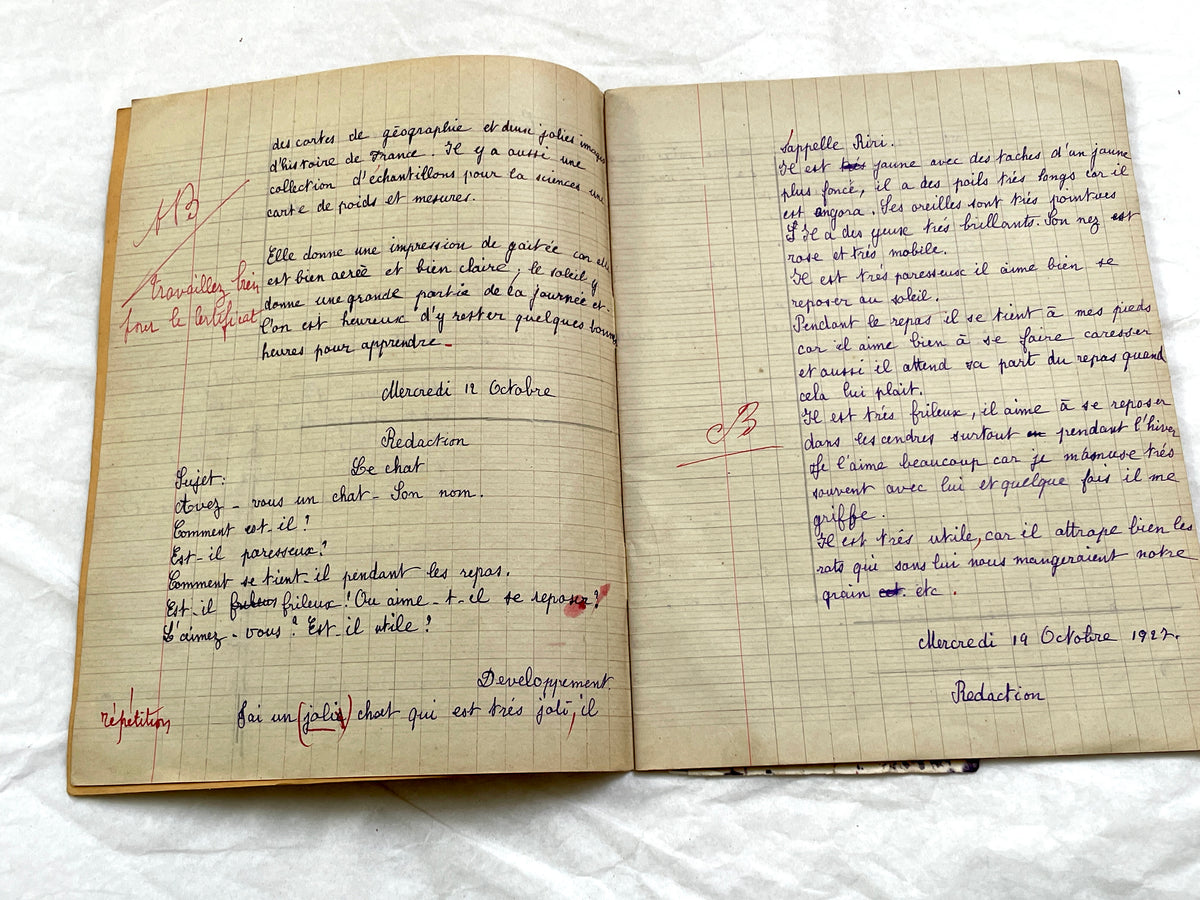 des cartes de géographie et deux jolies images
d'histoire de France. Il y a aussi une
collection d'échantillons pour la sciences une
carte de poids et mesures.
Elle donne une impression de gaitée car elle
est bien aereè et bien claire, le soleil y
donne une grande partie de la journée et
l'on est heureux d'y rester quelques bonnes
heures pour apprendre.
B
travaillez bien
pour le certificat
Mercredi 12 Octobre
Redaction
Sujet: Le chat
Avez-vous un chat - Son nom.
Comment est-il?
Est-il paresseux?
Comment se tient-il pendant les repas.
Est-il frileux frileux! Ou aime-t-il se reposer?
L'aimez-vous? Est-il utile?
Developpement.
répétition
J'ai un (joli) chat qui est trés joli, il
s'appelle Riri.
Il est trés jaune avec des taches d'un jaune
plus foncé, il a des poils trés longs car il
est angora. Ses oreilles sont trés pointues
Il a des yeux trés brillants. Son nez est
rose et trés mobile.
Il est trés paresseux il aime bien se
reposer au soleil.
Pendant le repas il se tient à mes pieds
car il aime bien à se faire caresser
et aussi il attend sa part du repas quand
cela lui plait.
Il est trés frileux, il aime à se reposer
dans les cendres surtout en pendant l'hiver
Je l'aime beaucoup car je m'amuse trés
souvent avec lui et quelque fois il me
griffe.
Il est trés utile, car il attrape bien les
rats qui sans lui nous mangeraient notre
grain etc.
B
Mercredi 19 Octobre 1927.
Redaction